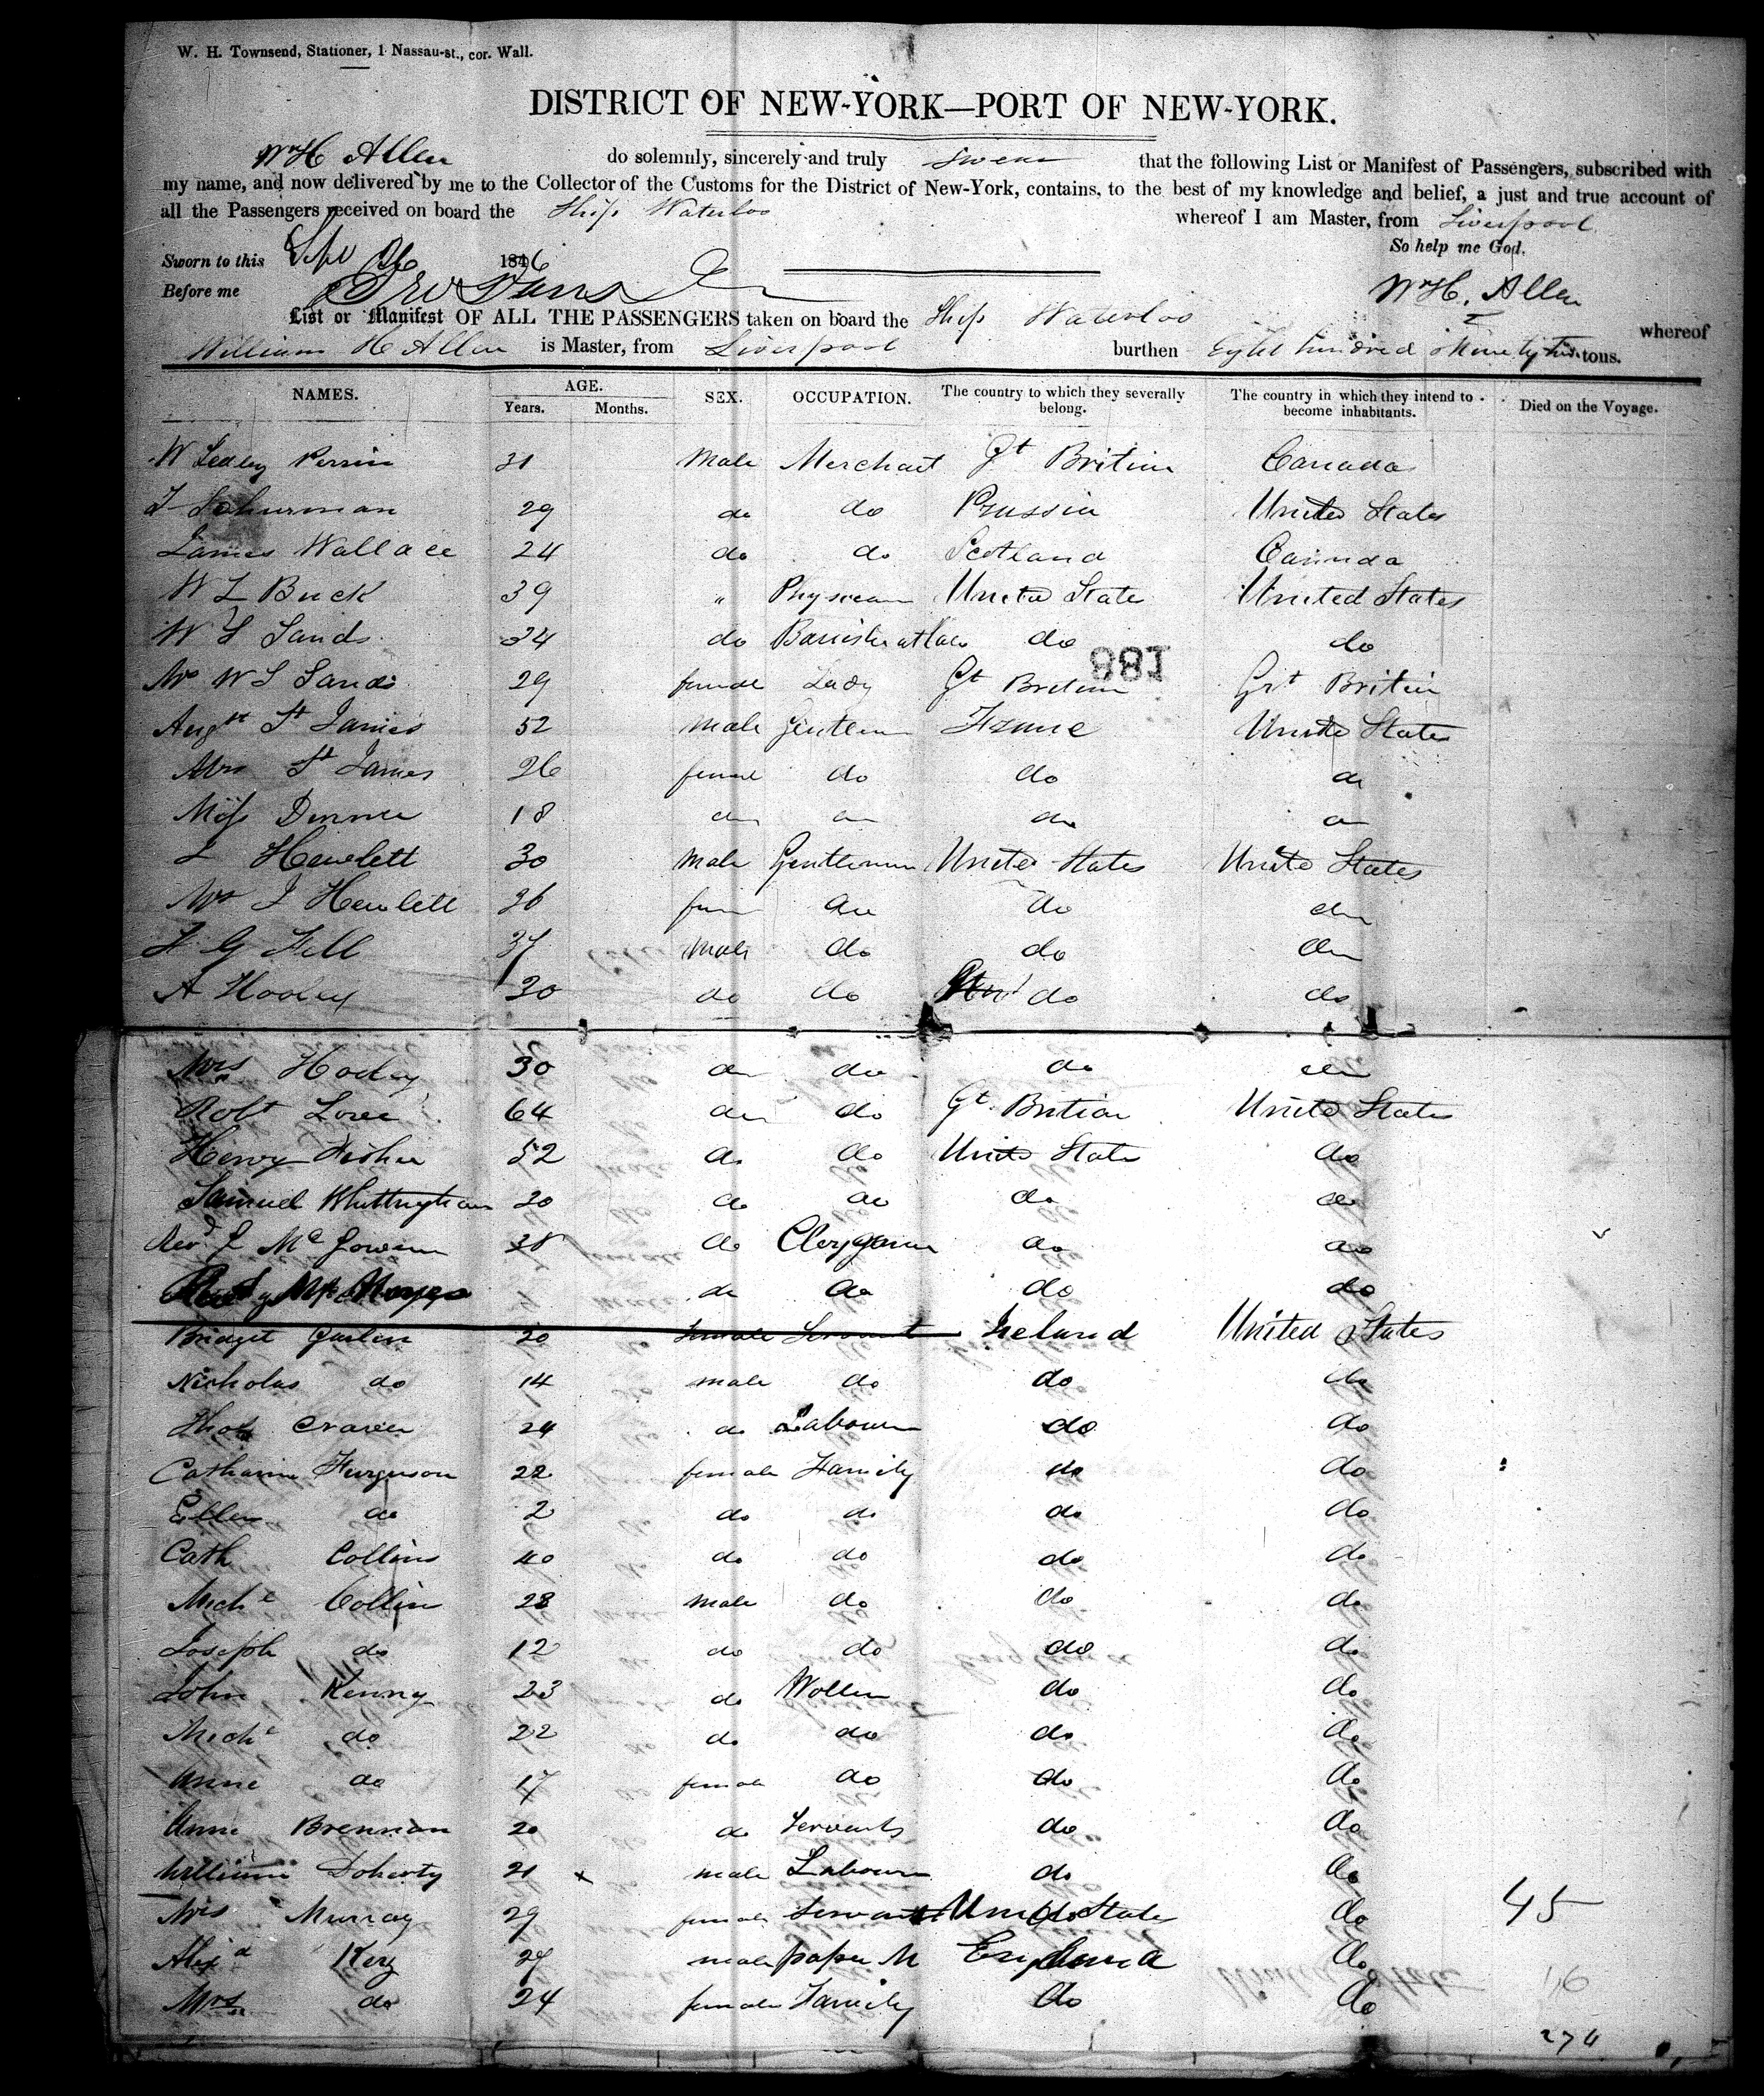 W. H. Townsend, Stationer, 1 Nassau-st., cor. Wall.
DISTRICT OF NEW-YORK—PORT OF NEW-YORK.
Wm H Allen do solemnly, sincerely and truly swear that the following List or Manifest of Passengers, subscribed with
my name, and now delivered by me to the Collector of the Customs for the District of New-York, contains, to the best of my knowledge and belief, a just and true account of
all the Passengers received on board the Ship Waterloo whereof I am Master, from Liverpool
So help me God.
Sworn to this Sept 26 1846
Before me Wm H. Allen
List or Manifest OF ALL THE PASSENGERS taken on board the Ship Waterloo whereof
William H Allen is Master, from Liverpool burthen Eight hundred & Ninety two tons.
NAMES. AGE. SEX. OCCUPATION. The country to which they severally belong. The country in which they intend to become inhabitants. Died on the Voyage.
Years. Months.
W Sedley Perrin 31 Male Merchant Gt Britian Canada
F Schurman 29 do do Prussia United States
James Wallace 24 do do Scotland Canada
W L Buck 39 " Physician United State United States
W S Sands 34 do Barrister at law do do
188
Mrs W S Sands 29 female Lady Gt Britain Grt Britain
Augst St James 52 Male Gentlem France United States
Mrs St James 26 female do do do
Miss 18 do do do do
J Hewlett 30 Male Gentleman United States United States
Mrs J Hewlett 26 fem do do do
F G Hill 37 Male do do do
A Hooley 30 do do do do
Mrs Hooley 30 do do do do
Robt 64 do do Gt. Britian United States
Henry Fisher 52 do do United States do
Samuel Whittingham 30 do do do do
Revd J McGowan 38 do Clergyman do do
do do do do
Bridget 20 female Servant Ireland United States
Nicholas do 14 male do do do
Thos Craven 24 do Labourer do do
Catharine Furguson 22 female Family do do
Ellen do 2 do do do do
Cath Collins 40 do do do do
Michl Collin 28 Male do do do
Joseph do 12 do do do do
John Kenny 23 do do do
Michl do 22 do do do do
Anne do 17 female do do do
Anne Brennan 20 do Servants do do
William Doherty 21 x male Labourer do do
Mrs Murray 29 female Servant United States do 45
Alexd Kerz 27 male paper M England do
Mrs do 24 female Family do do
116
274